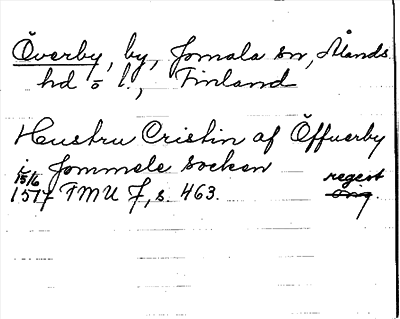 Överby, by, Jomala sn, Ålands
hd o l., Finland
Hustru Cristin af Öffuerby
i Jommele socken
15/6 regest
1517 FMU 7, s. 463. orig.